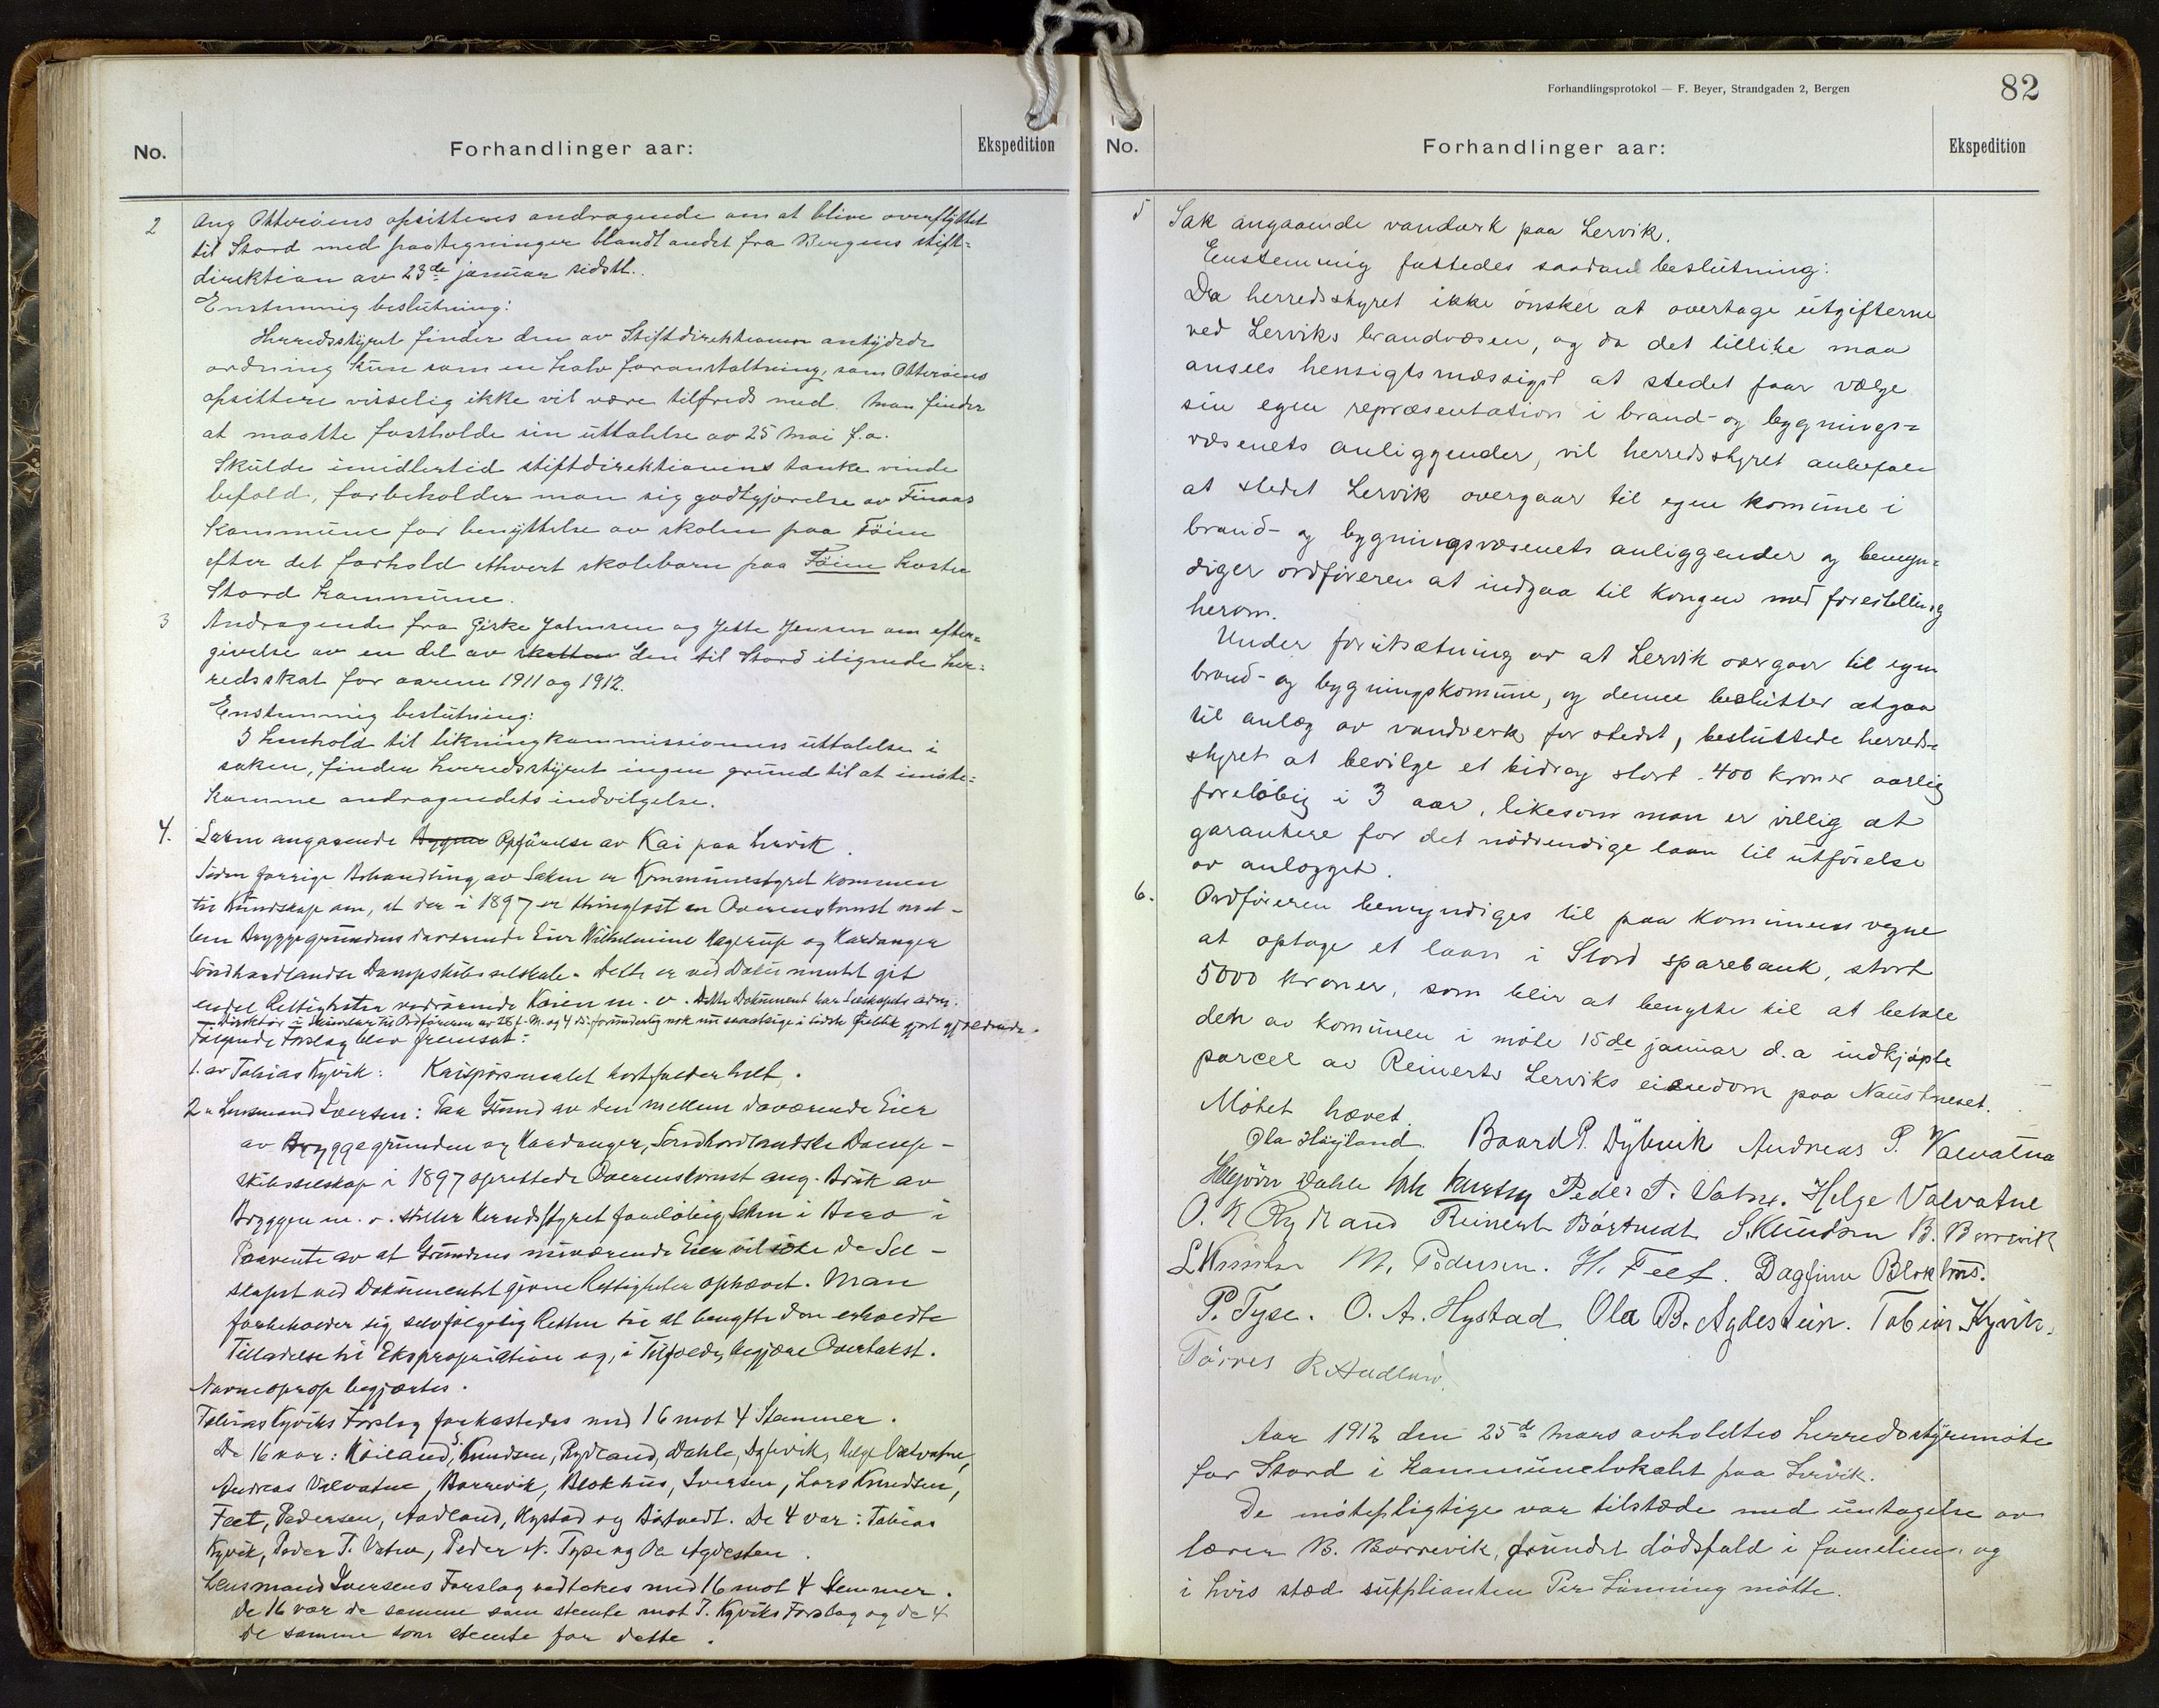 No.
Forhandlinger aar:
Ekspedition
2
Ang Otterøens opsitteres andragende om at blive overflyttet
til Stord med paategninger blandt andet fra Bergens stift=
direktion av 23de januar sidstl.
Enstemmig beslutning:
Herredsstyret finder den av Stiftdirektionen antydede
ordning kun som en halv foranstaltning, som Otterøens
opsittere visselig ikke vil være tilfreds med. Man finder
at maatte fastholde sin uttalelse av 25 mai f.a.
Skulde imidlertid stiftdirektionens tanke vinde
befald, forbeholder man sig godtgjørelse av Finaas
kommune for benyttelse av skolen paa Föien
efter det forhold ethvert skolebarn paa Föien koster
Stord kommune.
3
Andragende fra Girke Johnsen og Jette Jensen om efter=
givelse av en del av skatten den til Stord ilignede her=
redsskat for aarene 1911 og 1912.
Enstemmig beslutning:
I henhold til likningkommissionens uttalelse i
saken, finder herredsstyret ingen grund til at imøte=
komme andragendets indvilgelse.
4.
Saken angaaende Opførelse av Kai paa Lervik.
Siden forrige Behandling av Saken er Kommunestyret kommen
til Kundskap om, at der i 1897 er thinglæst en Overenskomst mel-
lem Bryggegrundens daværende Eier Wilhelmine Hagerup og Hardanger
Söndhordlandse Dampskibsselskab. Dette er ved Dokumentet git
endel Rettigheter vedrørende Kaien m. v. Dette Dokument har Selskapets adm.
Direktør i Skrivelser til Ordføreren av 28 f. M. og 4 ds. forunderlig nok nu saavidt i sidste Øieblik gjort gjældende.
Følgende Forslag blev fremsat:
1. av Tobias Kyvik: Kaispørsmaalet bortfalder helt.
2 " Lensmand Iversen: Paa Grund av den mellem daværende Eier
av Bryggegrunden og Hardanger, Söndhordlandske Damp-
skibsselskap i 1897 oprettede Overenskomst ang. Bruk av
Bryggen m. v. stiller Herredsstyret foreløbig Saken i Bero i
Paavente av at Grundens nuværende Eier vil søke de Sel-
skapet ved Dokumentet givne Rettigheter ophævet. Man
forbeholder sig selvfølgelig Retten til at benytte den erholdte
Tilladelse til Ekspropriation og, i Tilfælde, begjære Overtakst.
Navneoprop begjærtes.
Tobias Kyviks Forslag forkastedes med 16 mot 4 Stemmer.
De 16 var: Høiland, S. Knudsen, Rydland, Dahle, Dybvik, Helge Valvatne,
Andreas Valvatne, Borrevik, Blokhus, Iversen, Lars Knudsen,
Feet, Pedersen, Aadland, Hystad og Børtvedt. De 4 var: Tobias
Kyvik, Peder T. Vatne, Peder N. Tyse og Ole Agdesten.
Lensmand Iversens Forslag vedtokes med 16 mot 4 Stemmer.
De 16 var de samme som stemte mot T. Kyviks Forslag og de 4
de samme som stemte for dette.
Forhandlingsprotokol — F. Beyer, Strandgaden 2, Bergen
82
No.
Forhandlinger aar:
Ekspedition
5
Sak angaaende vandverk paa Lervik.
Enstemmig fattedes saadan beslutning:
Da herredsstyret ikke ønsker at overtage utgifterne
ved Lerviks brandvæsen, og da det tillike maa
ansees hensigtsmæssigst at stedet faar vælge
sin egen repræsentation i brand- og bygnings=
væsenets anliggender, vil herredsstyret anbefale
at stedet Lervik overgaar til egen komune i
brand- og bygningsvæsenets anliggender og bemyn=
diger ordføreren at indgaa til Kongen med forestilling
herom.
Under forutsætning av at Lervik overgaar til egen
brand- og bygningskomune, og denne beslutter at gaa
til anlæg av vandverk for stedet, besluttede herreds=
styret at bevilge et bidrag stort 400 kroner aarlig
foreløbig i 3 aar, likesom man er villig at
garantere for det nödvendige laan til utförelse
av anlægget.
6.
Ordføreren bemyndiges til paa komunens vegne
at optage et laan i Stord sparebank, stort
5000 kroner, som blir at benytte til at betale
den av komunen i møte 15de januar d.a indkjøpte
parcel av Reinerts Lerviks eiendom paa Naustneset.
Møtet hævet.
Ola Høyland. Baard P. Dybvik Andreas P. Valvatna
Helgjörn Dahle Peder T. Vatne. Helge Valvatne
O. K Rydland Reinert Børtvedt S. Knudsen B. Borrevik
L Knudsen M. Pedersen. H. Feet. Dagfinn Blokhus.
P. Tyse. O. A. Hystad Ola B. Agdestein. Tobias Kyvik.
Törres R Aadland.
Aar 1912 den 25de mars avholdtes herredsstyremøte
for Stord i kommunelokalet paa Lervik.
De møtepligtige var tilstæde med untagelse av
lærer B. Borrevik, grundet dødsfald i familien og
i hvis stæd supplianten Per Lønning møtte.